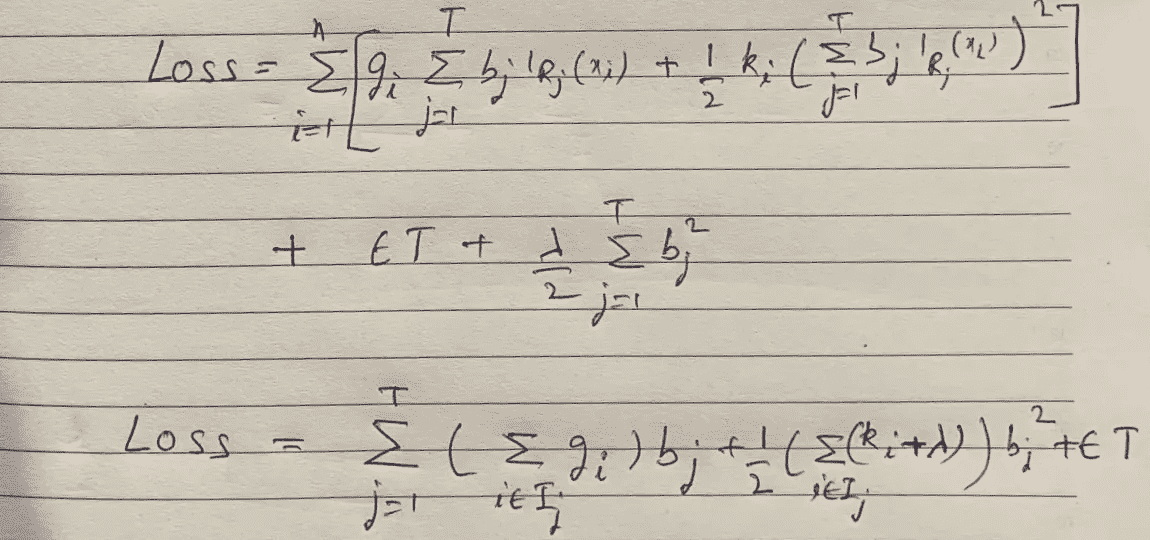 Loss = \sum_{i=1}^{n} [ g_i \sum_{j=1}^{T} b_j 1_{R_j}(x_i) + \frac{1}{2} k_i ( \sum_{j=1}^{T} b_j 1_{R_j}(x_i) )^2 ]
+ ϵT + \frac{λ}{2} \sum_{j=1}^{T} b_j^2
Loss = \sum_{j=1}^{T} ( \sum_{i∈I_j} g_i ) b_j + \frac{1}{2} ( \sum_{i∈I_j} (k_i + λ) ) b_j^2 + ϵT